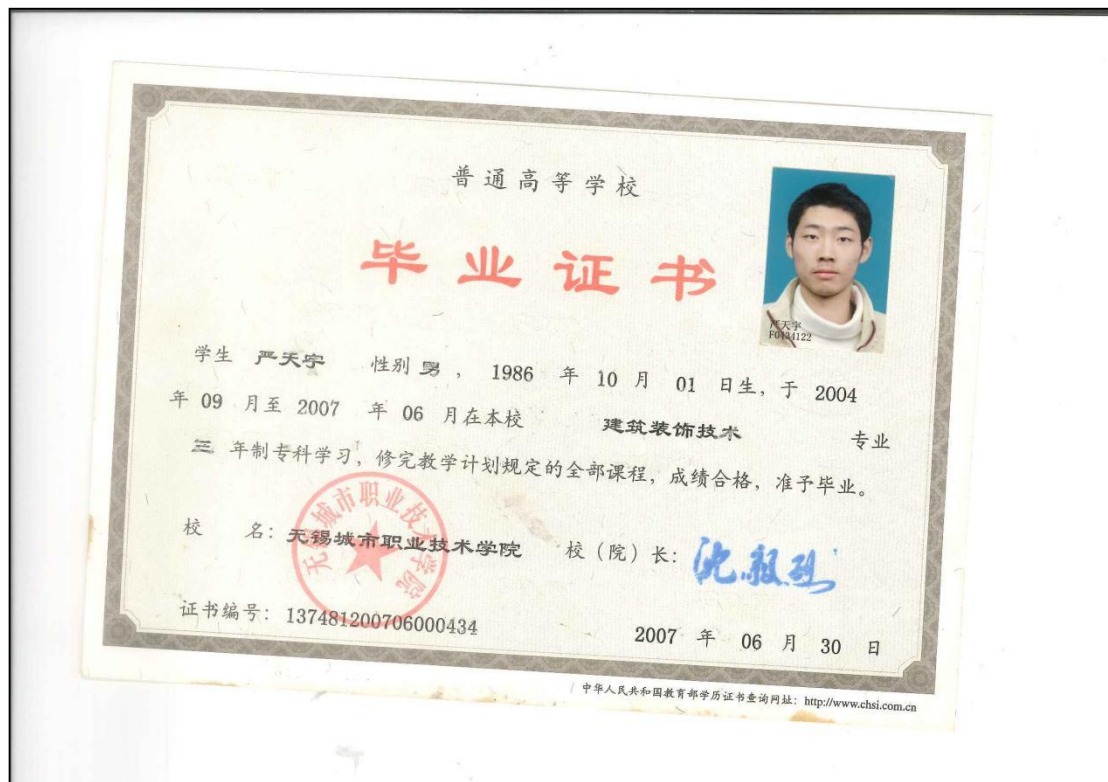 普通高等学校
毕业证书
严天宇
F0434122
学生 严天宇 性别 男, 1986 年 10 月 01 日生, 于 2004
年 09 月至 2007 年 06 月在本校 建筑装饰技术 专业
三 年制专科学习, 修完教学计划规定的全部课程, 成绩合格, 准予毕业。
无锡城市职业技术学院
校 名: 无锡城市职业技术学院 校(院)长: 沈毅
证书编号: 137481200706000434 2007 年 06 月 30 日
中华人民共和国教育部学历证书查询网址: http://www.chsi.com.cn